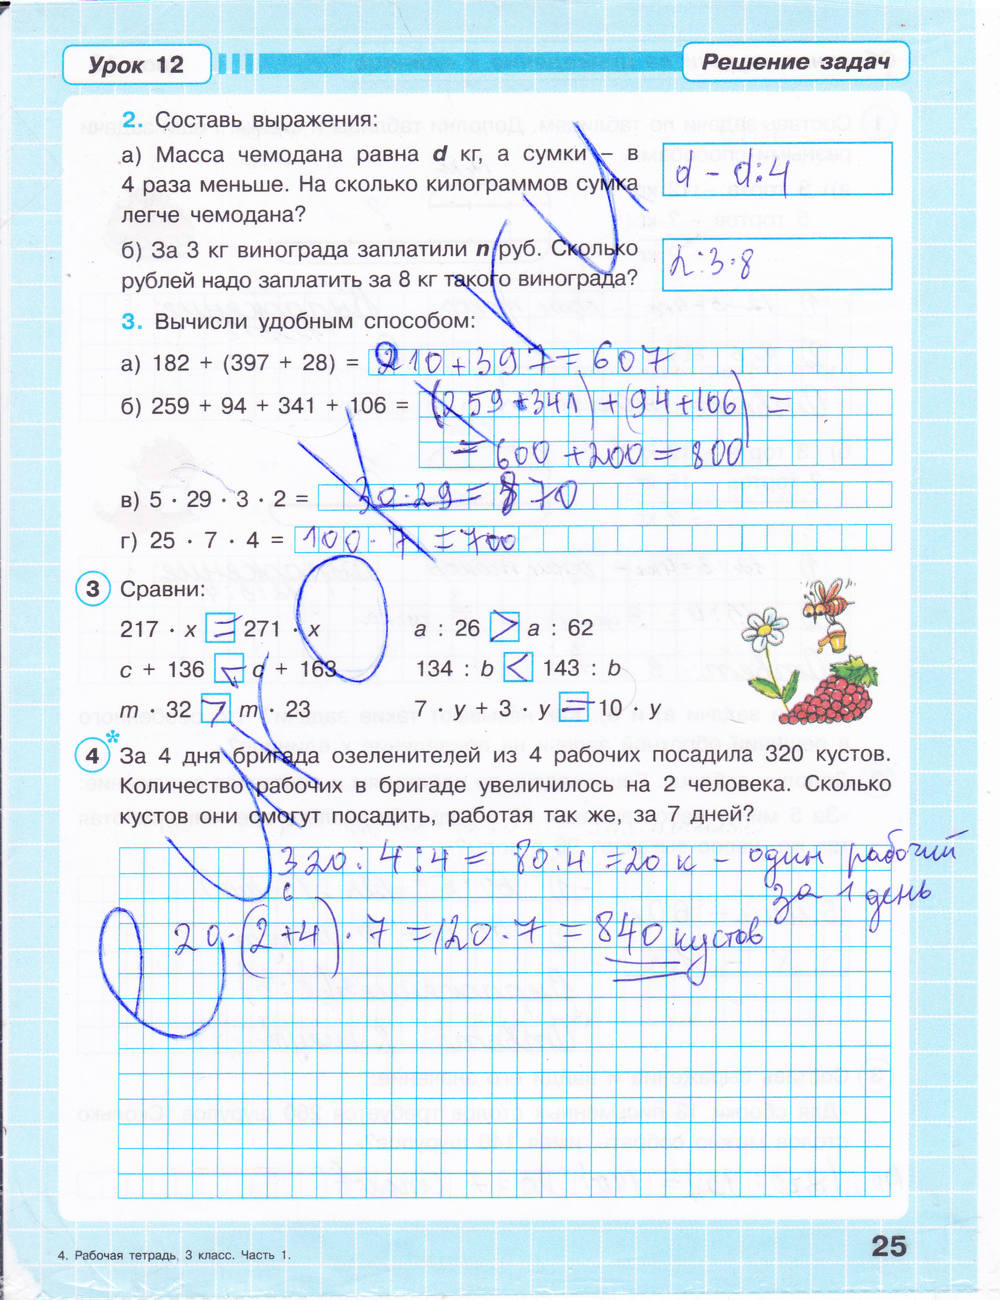 Урок 12
Решение задач
2. Составь выражения:
а) Масса чемодана равна d кг, а сумки – в
4 раза меньше. На сколько килограммов сумка
легче чемодана?
d - d:4
б) За 3 кг винограда заплатили n руб. Сколько
рублей надо заплатить за 8 кг такого винограда?
n:3·8
3. Вычисли удобным способом:
а) 182 + (397 + 28) = 210+397=607
б) 259 + 94 + 341 + 106 = (259+341)+(94+106) =
= 600+200=800
в) 5 · 29 · 3 · 2 = 30·29=870
г) 25 · 7 · 4 = 100·7=700
3 Сравни:
217 · x = 271 · x a : 26 > a : 62
c + 136 < c + 163 134 : b < 143 : b
m · 32 > m · 23 7 · y + 3 · y = 10 · y
4* За 4 дня бригада озеленителей из 4 рабочих посадила 320 кустов.
Количество рабочих в бригаде увеличилось на 2 человека. Сколько
кустов они смогут посадить, работая так же, за 7 дней?
320:4:4= 80:4=20 к - один рабочий
за 1 день
6
20·(2+4)·7=120·7=840 кустов
4. Рабочая тетрадь, 3 класс. Часть 1.
25